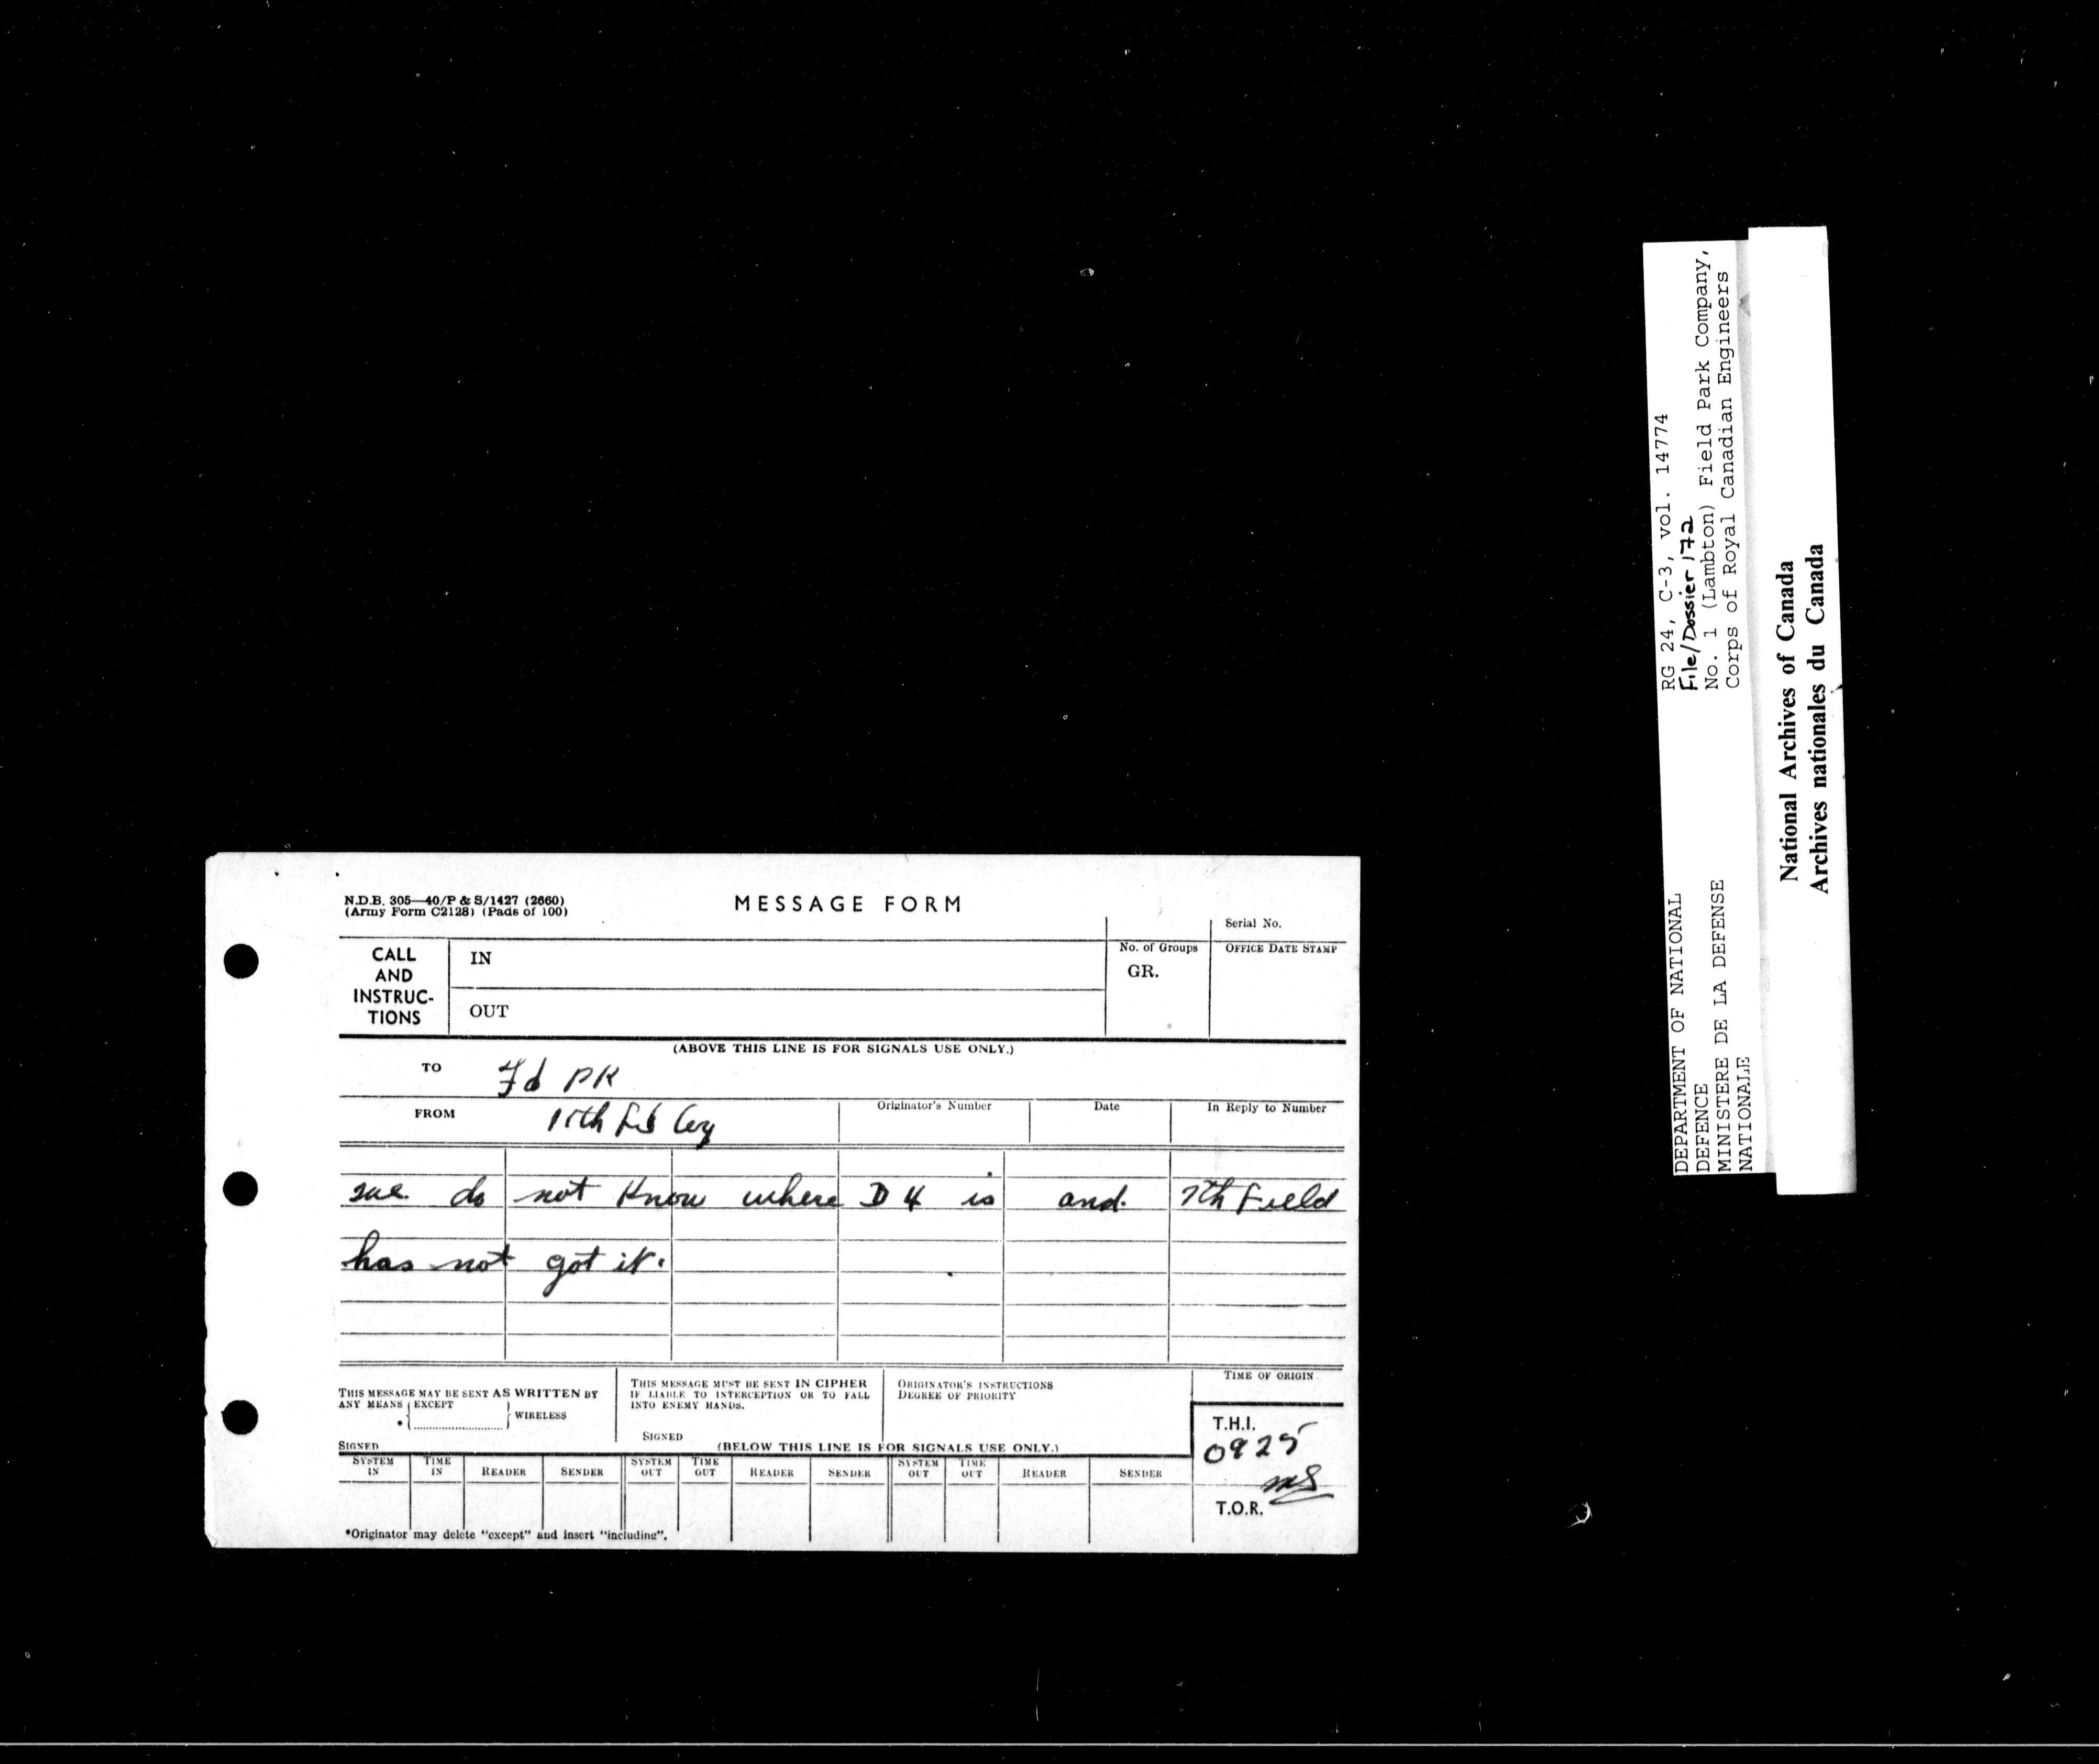 N.D.B. 305—40/P & S/1427 (2660)
(Army Form C2128) (Pads of 100)
MESSAGE FORM
Serial No.
CALL
AND
INSTRUC-
TIONS
IN
OUT
No. of Groups
GR.
OFFICE DATE STAMP
(ABOVE THIS LINE IS FOR SIGNALS USE ONLY.)
TO
Fd PK
FROM
Fd Coy
Originator's Number
Date
In Reply to Number
we do not Know where D 4 is and 7th Field
has not got it.
THIS MESSAGE MAY BE SENT AS WRITTEN BY
ANY MEANS EXCEPT
* WIRELESS
SIGNED
THIS MESSAGE MUST BE SENT IN CIPHER
IF LIABLE TO INTERCEPTION OR TO FALL
INTO ENEMY HANDS.
SIGNED
ORIGINATOR'S INSTRUCTIONS
DEGREE OF PRIORITY
TIME OF ORIGIN
T.H.I.
0925
T.O.R.
(BELOW THIS LINE IS FOR SIGNALS USE ONLY.)
SYSTEM IN TIME IN READER SENDER SYSTEM OUT TIME OUT READER SENDER SYSTEM OUT TIME OUT READER SENDER
*Originator may delete "except" and insert "including".
DEPARTMENT OF NATIONAL
DEFENCE
MINISTERE DE LA DEFENSE
NATIONALE
RG 24, C-3, vol. 14774
File/Dossier 172
No. 1 (Lambton) Field Park Company,
Corps of Royal Canadian Engineers
National Archives of Canada
Archives nationales du Canada